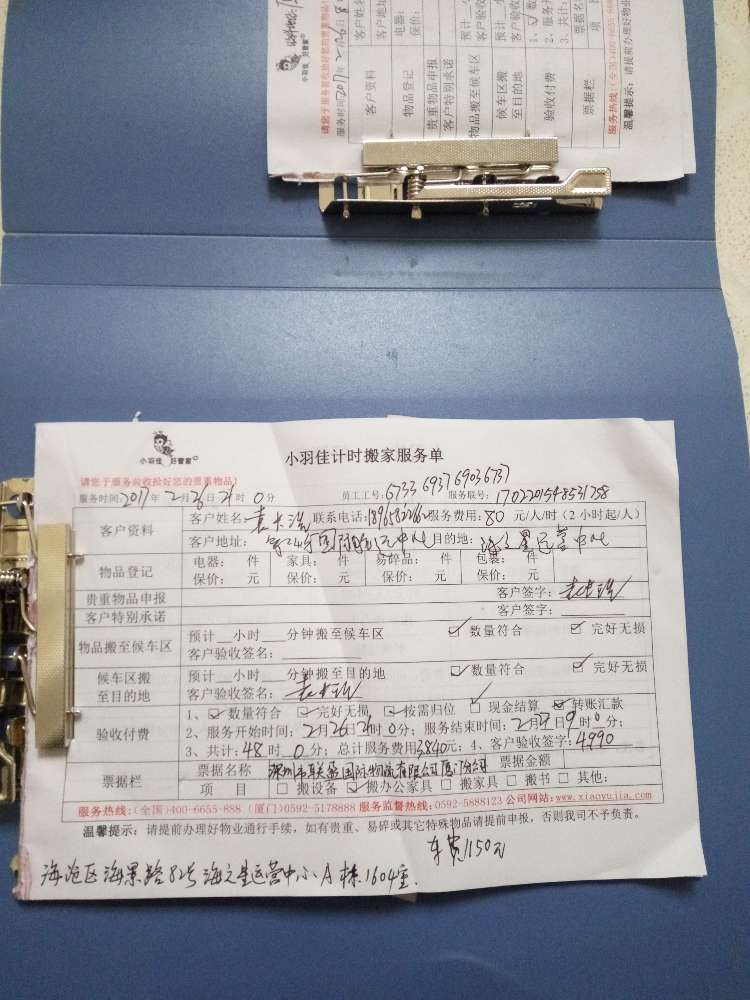 请您于服务前收捡好您的贵重物品!
服务时间:2017年2月26日
小羽佳 好管家
客户资料 客户姓名
客户地址
物品登记 电器:
保价:
贵重物品申报
客户特别承诺
物品搬至候车区 预计
客户验收
候车区搬
至目的地 预计
验收付费 1、数
2、服务
3、共计:
票据栏 票据名
项
服务热线:(全国)400-6655-888
温馨提示:请提前办理好物业
小羽佳 好管家
小羽佳计时搬家服务单
请您于服务前收捡好您的贵重物品!
服务时间:2017年2月26日21时0分 员工工号:6733 6937 6903 6737 服务联号:
客户资料 客户姓名: 联系电话: 服务费用:80元/人/时(2小时起/人)
客户地址: 国际 中心 目的地:海之星运营中心
物品登记 电器: 件 家具: 件 易碎品: 件 包裹: 件
保价: 元 保价: 元 保价: 元 保价: 元
贵重物品申报 客户签字:
客户特别承诺 客户签字:
物品搬至候车区 预计__小时__分钟搬至候车区 ☑数量符合 ☑完好无损
客户验收签名:
候车区搬
至目的地 预计__小时__分钟搬至目的地 ☑数量符合 ☑完好无损
客户验收签名:
验收付费 1、☑数量符合 ☑完好无损 ☑按需归位 □现金结算 ☑转账汇款
2、服务开始时间:2月26日21时0分;服务结束时间:2月27日9时0分;
3、共计:48时0分;总计服务费用3840元;4、客户验收签字:4990
票据栏 票据名称 深圳市联 国际物流有限公司厦门分公司 票据金额
项 目 □搬设备 ☑搬办公家具 □搬家具 □搬书 □其他:
服务热线:(全国)400-6655-888 (厦门)0592-5178888 服务监督热线:0592-5888123 公司网站:www.xiaoyujia.com
温馨提示:请提前办理好物业通行手续,如有贵重、易碎或其它特殊物品请提前申报,否则我司不予负责。
车费1150元
海沧区海景路82号海之星运营中心A栋1604室.